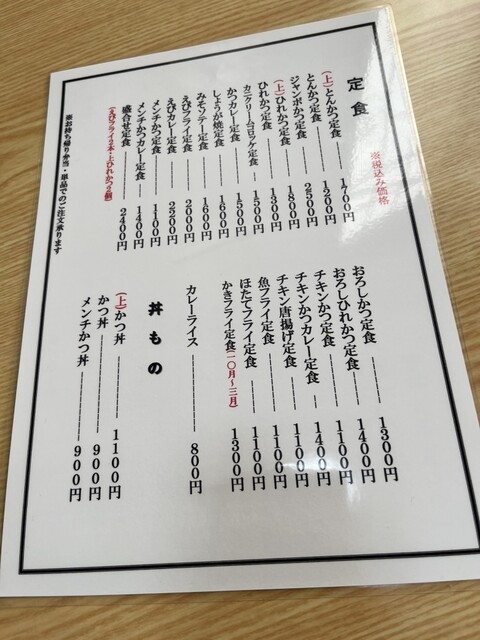 定食
※税込み価格
(上)とんかつ定食 1700円
とんかつ定食 1200円
ジャンボかつ定食 2500円
(上)ひれかつ定食 1800円
ひれかつ定食 1300円
カニクリームコロッケ定食 1500円
かつカレー定食 1500円
しょうが焼定食 1600円
みそソテー定食 1600円
えびフライ定食 2000円
えびカレー定食 2200円
メンチかつ定食 1100円
メンチかつカレー定食 1400円
盛合せ定食 2400円
(えびフライ2本・上ひれかつ2個)
※お持ち帰り弁当・単品でのご注文承ります
おろしかつ定食 1300円
おろしひれかつ定食 1400円
チキンかつ定食 1100円
チキンかつカレー定食 1400円
チキン唐揚げ定食 1100円
魚フライ定食 1100円
ほたてフライ定食 1100円
かきフライ定食(一〇月~三月) 1300円
カレーライス 800円
丼もの
(上)かつ丼 1100円
かつ丼 900円
メンチかつ丼 900円